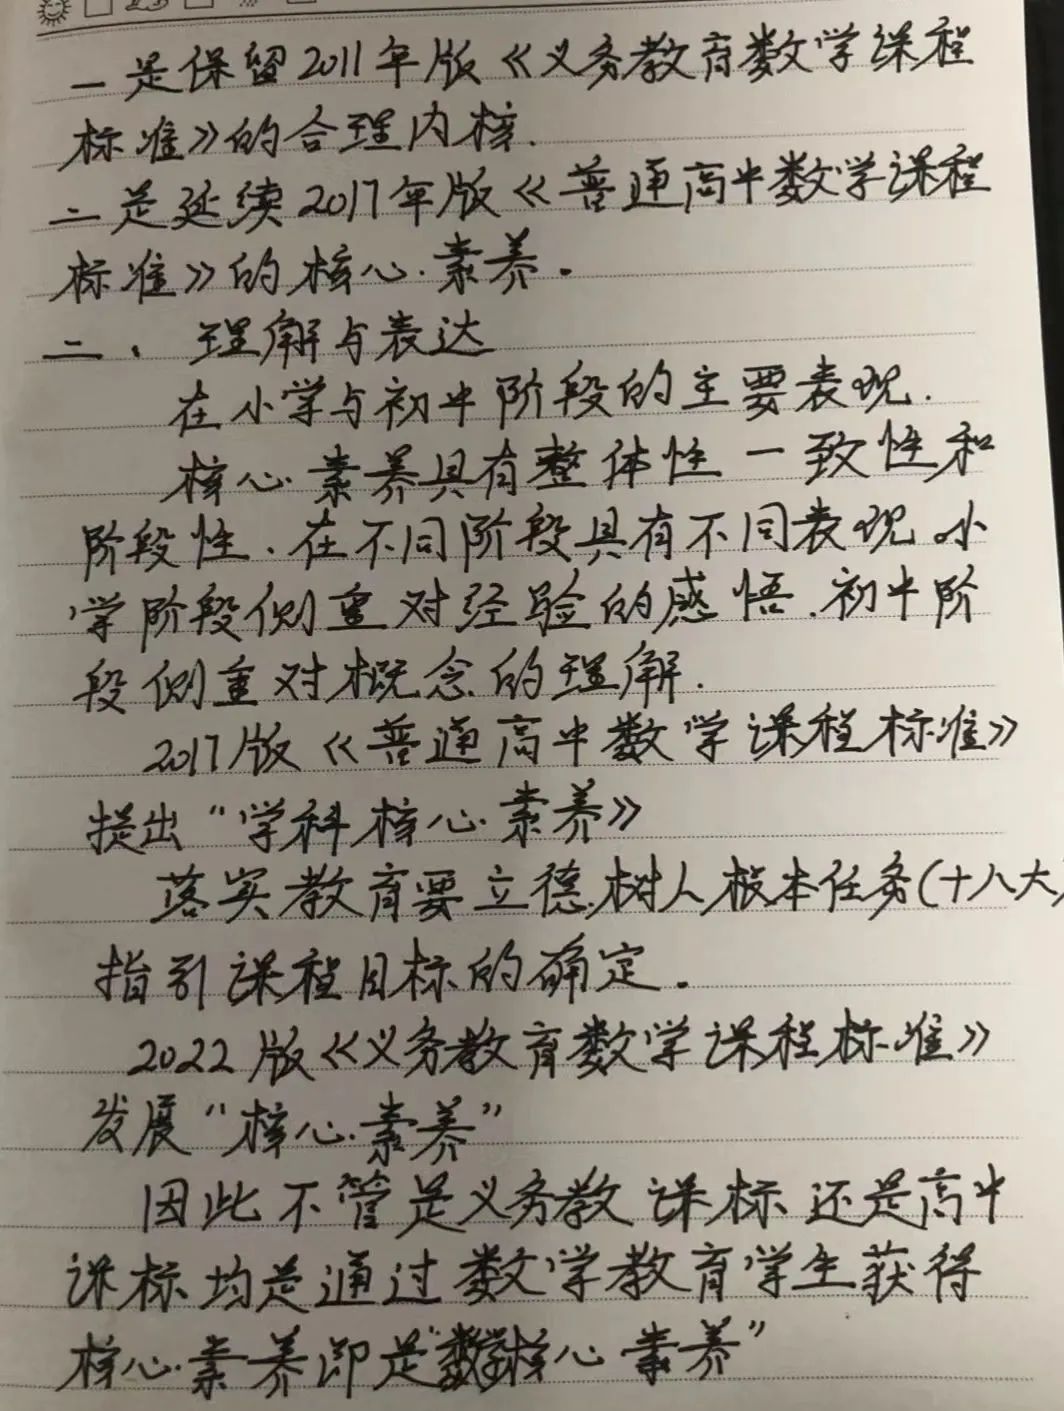 一是保留2011年版《义务教育数学课程
标准》的合理内核.
二是延续2017年版《普通高中数学课程
标准》的核心素养.
二、理解与表达
在小学与初中阶段的主要表现.
核心素养具有整体性一致性和
阶段性、在不同阶段具有不同表现.小
学阶段侧重对经验的感悟.初中阶
段侧重对概念的理解.
2017版《普通高中数学课程标准》
提出“学科核心素养》
落实教育要立德树人根本任务(十八大)
指引课程目标的确定.
2022版《义务教育数学课程标准》
发展“核心素养”
因此不管是义务教课标还是高中
课标均是通过数学教育学生获得
核心素养即是“数学核心素养”